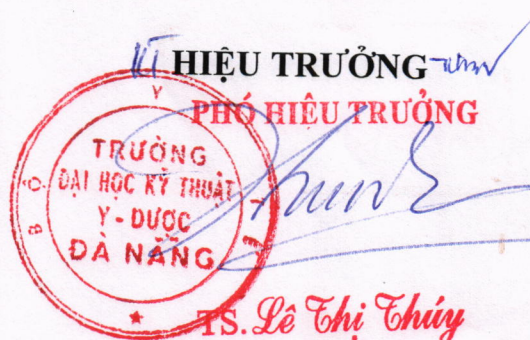 HIỆU TRƯỞNG
PHÓ HIỆU TRƯỞNG
BỘ Y TẾ
TRƯỜNG
ĐẠI HỌC KỸ THUẬT
Y - DƯỢC
ĐÀ NẴNG
TS. Lê Thị Thúy